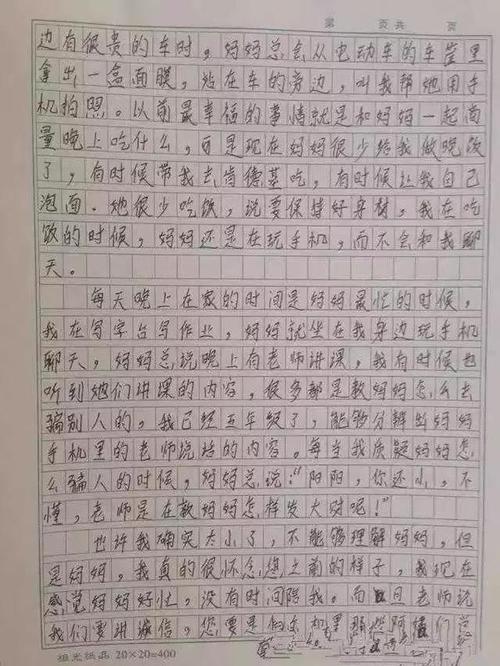 第 页共 页
边有很贵的车时，妈妈总会从电动车的车筐里
拿出一盒面膜，站在车的旁边，叫我帮她用手
机拍照。以前最幸福的事情就是和妈妈一起商
量晚上吃什么，可是现在妈妈很少给我做晚饭
了，有时候带我去肯德基吃，有时候让我自己
泡面．她很少吃饭，说要保持好身材，我在吃
饭的时候，妈妈还是在玩手机，而不会和我聊
天。
每天晚上在家的时间是妈妈最忙的时候，
我在写字台写作业，妈妈就坐在我身边玩手机
聊天。妈妈总说晚上有老师讲课，我有时候也
听到她们讲课的内容，很多都是教妈妈怎么去
骗别人的。我已经五年级了，能够分辨出妈妈
手机里的老师说话的内容。每当我质疑妈妈怎
么骗人的时候，妈妈总说：“阳阳，你还小，不
懂，老师是在教妈妈怎样发大财呢！”
也许我确实太小了，不能够理解妈妈，但
是妈妈，我真的很怀念您之前的样子，我现在
感觉妈妈好忙，没有时间陪我。 日老师说
我们要讲诚信，您要是 里 阿 们
20×20=400